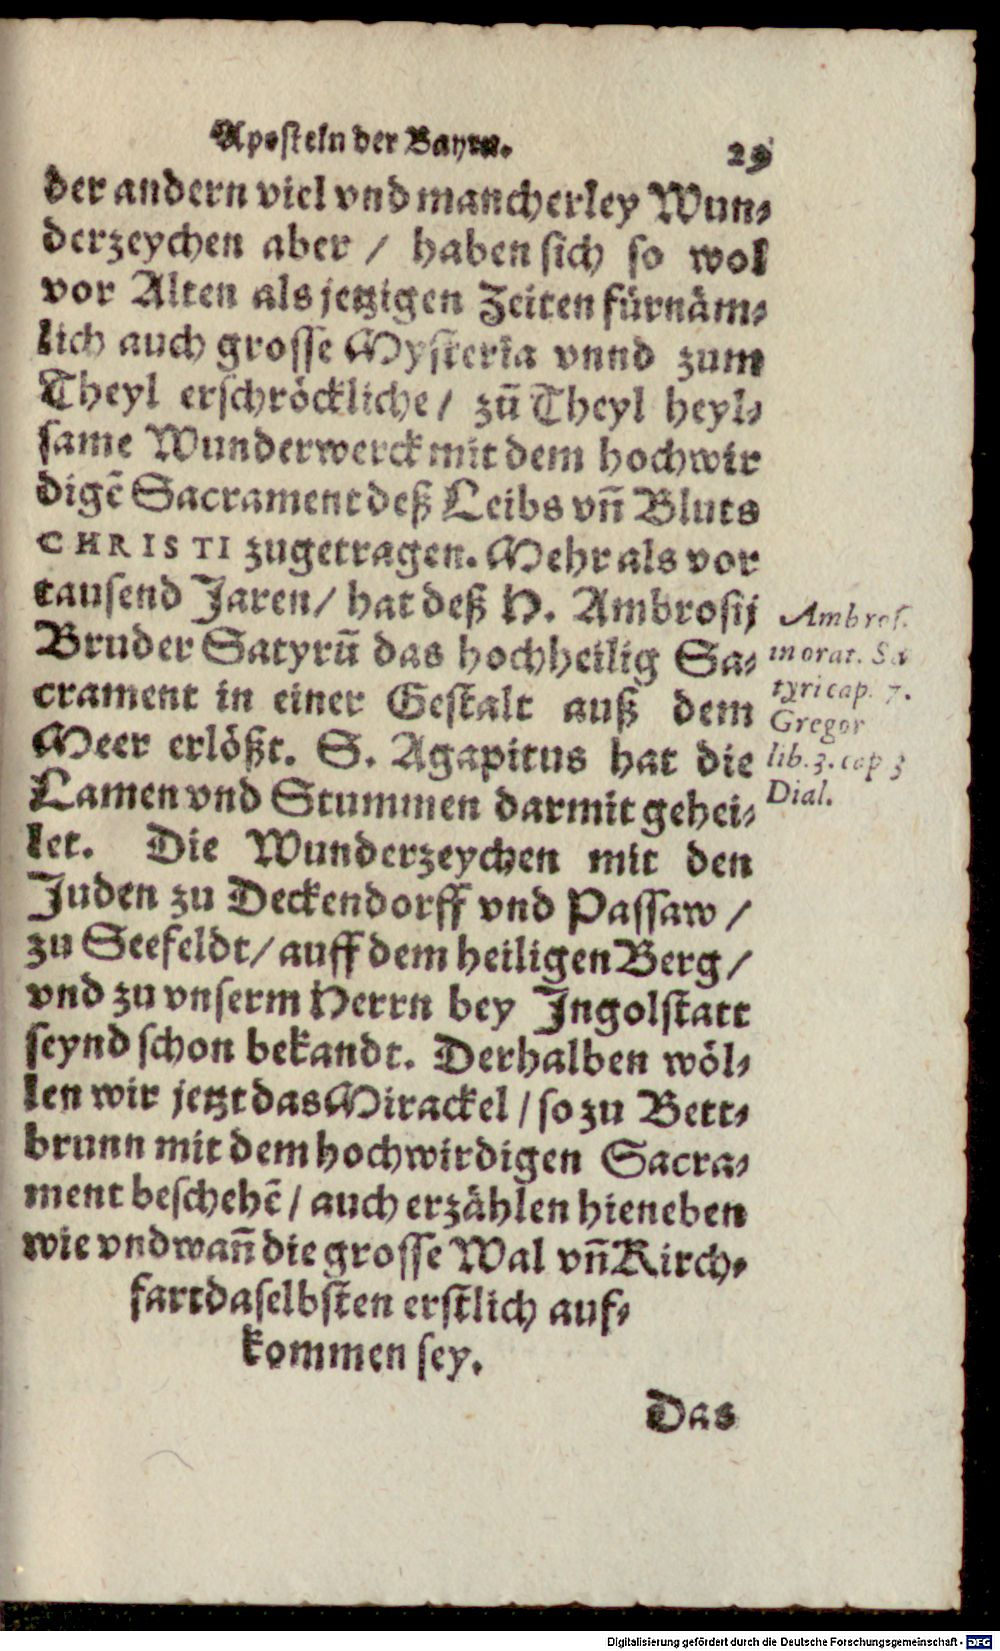 Aposteln der Bayrn.
29
der andern viel vnd mancherley Wun-
derzeychen aber / haben sich so wol
vor Alten als jetzigen Zeiten fürnäm-
lich auch grosse Mysteria vnnd zum
Theyl erschröckliche / zũ Theyl heyl-
same Wunderwerck mit dem hochwir
digẽ Sacrament deß Leibs vñ Bluts
CHRISTI zugetragen. Mehr als vor
tausend Jaren / hat deß H. Ambrosij
Bruder Satyrũ das hochheilig Sa-
crament in einer Gestalt auß dem
Meer erlößt. S. Agapitus hat die
Lamen vnd Stummen darmit gehei-
let. Die Wunderzeychen mit den
Juden zu Deckendorff vnd Passaw /
zu Seefeldt / auff dem heiligen Berg /
vnd zu vnserm Herrn bey Jngolstatt
seynd schon bekandt. Derhalben wöl-
len wir jetzt das Mirackel / so zu Bett-
brunn mit dem hochwirdigen Sacra-
ment beschehẽ / auch erzählen hieneben
wie vnd wañ die grosse Wal vñ Kirch-
fart daselbsten erstlich auf-
kommen sey.
Das
Ambros.
morat. Sa
tyri cap. 7.
Gregor
lib. 3. cap 3
Dial.
Digitalisierung gefördert durch die Deutsche Forschungsgemeinschaft - DFG